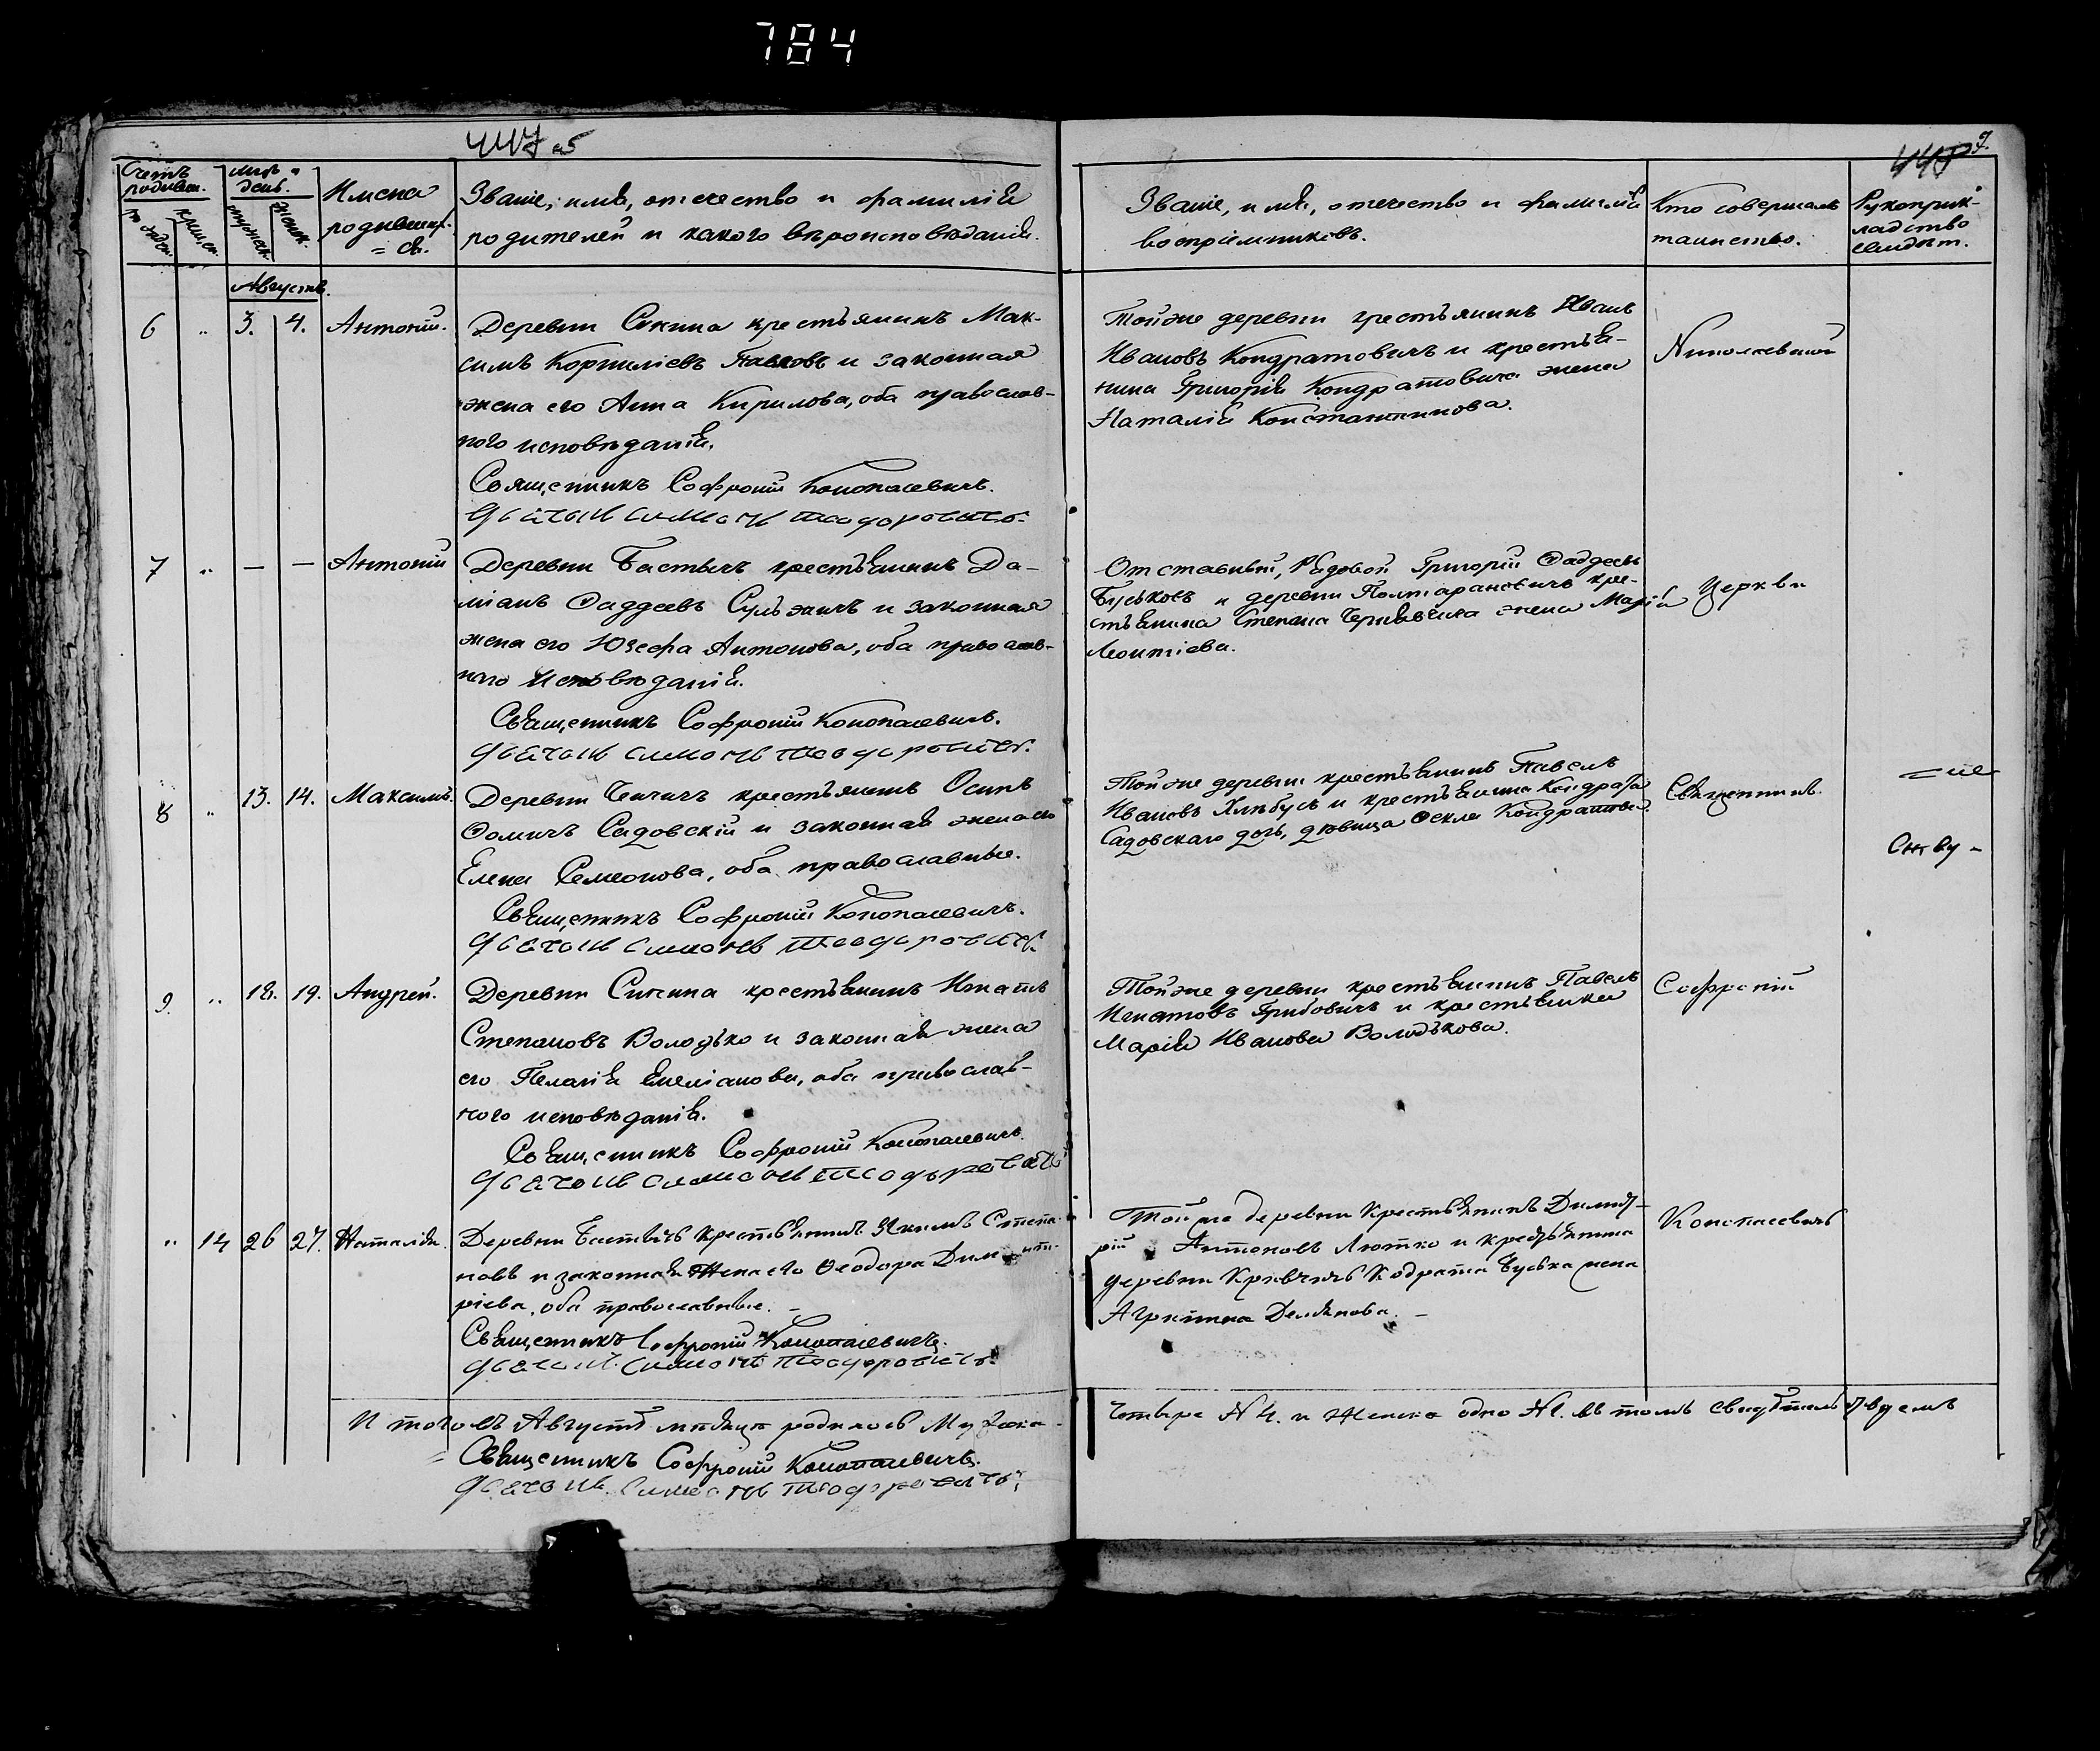 784
447 об
448 9.
Счетъ родивш. Мѣс. и день. Имена родивших=ся. Званіе, имя, отчество и фамилія родителей и какого вѣроисповѣданія.
Званіе, имя, отчество и фамилія воспріемниковъ. Кто совершалъ таинство. Рукоприкладство свидѣт.
Августъ.
6 " 3. 4. Антоній.
Деревни Сикина крестьянинъ Мак-
симъ Корниліевъ Павловъ и законная
жена его Анна Кирилова, оба православ-
ного исповѣданія.
Священникъ Софроній Конопасевичъ.
Дьячокъ Симонъ Теодоровичъ.
Тойже деревни крестьянинъ Иванъ
Ивановъ Кондратовичъ и крестья-
нина Григорія Кондратовича жена
Наталія Константинова.
Николаевской
7 " — — Антоній
Деревни Бастычъ крестьянинъ Да-
міанъ Фаддеевъ Сульжичъ и законная
жена его Юзефа Антонова, оба православ-
ного исповѣданія.
Священникъ Софроній Конопасевичъ.
Дьячокъ Симонъ Теодоровичъ.
Отставный, Рядовой Григорій Фаддеевъ
Буськовъ и деревни Полтарановичъ кре-
стьянина Степана Чернявсила жена Марія
Леонтіева.
Церкви
8 " 13. 14. Максимъ.
Деревни Чепичъ крестьянинъ Осипъ
Фомичъ Садовскій и законная жена его
Елена Семеонова, оба православные.
Священникъ Софроній Конопасевичъ.
Дьячокъ Симонъ Теодоровичъ.
Тойже деревни крестьянинъ Павелъ
Ивановъ Хлѣбусъ и крестьянина Кондрата
Садовскаго дочь, дѣвица Фекла Кондратова.
Священникъ
9. " 18. 19. Андрей.
Деревни Сикина крестьянинъ Игнатъ
Степановъ Володько и законная жена
его Пелагія Емеліанова, оба православ-
ного исповѣданія.
Священникъ Софроній Конопасевичъ
Дьячокъ Симонъ Теодоровичъ
Тойже деревни крестьянинъ Павелъ
Игнатовъ Грибовичъ и крестьянка
Марія Иванова Володькова.
Софроній
" 14 26 27. Наталія.
Деревни Бастычъ крестьянинъ Якимъ Степа-
новъ и законная жена его Феодора Димит-
ріева, оба православные. —
Священникъ Софроній Конопасевичъ.
Дьячокъ Симонъ Теодоровичъ
Тойже деревни Крестьянинъ Димит-
рій Антоновъ Лютко и крестьянина
деревни Кривичъ Кодрата Буська жена
Агрипина Демянова. —
Конопасевичъ
Итого въ Августѣ мѣсяцѣ родилось Мужска-
четыре №4. и Женска одно №1. въ томъ свидѣтельствуемъ
Священникъ Софроній Конопасевичъ.
Дьячокъ Симонъ Теодоровичъ